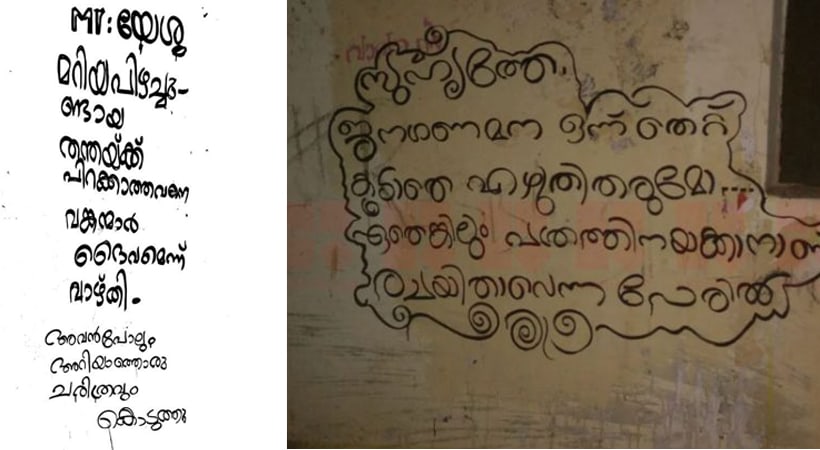 ന്യൂ: യേശു
മറിയപിഴച്ചു-
ണ്ടായ
തന്തയ്ക്ക്
പിറക്കാത്തവനെ
വങ്കന്മാർ
ദൈവമെന്ന്
വാഴ്ത്തി.
അവൻപോലും
അറിയാത്തൊരു
ചരിത്രവും
കൊടുത്തു
സുഹൃത്തേ.
ജനഗണമന ഒന്ന് തെറ്റ്
കൂടാതെ എഴുതിതരുമോ....
ഏതെങ്കിലും പത്രത്തിനയക്കാനാണ്
രചയിതാവെന്ന പേരിൽ